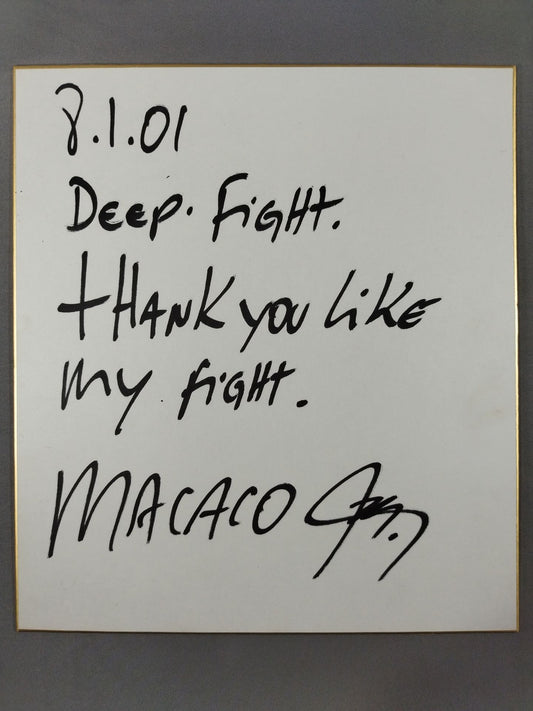 8.1.01
DEEP. FIGHT.
tHANK YOU LIKE
MY FIGHT.
MACACO